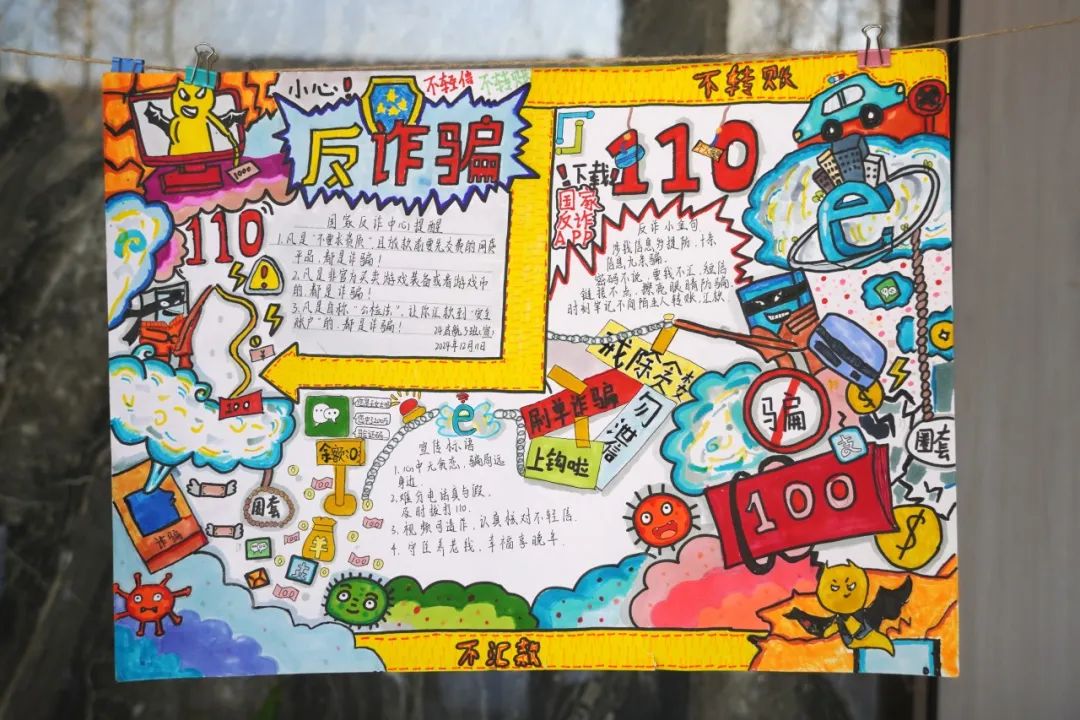 小心!
不轻信
不转账
不转账
反诈骗
110
下载!
国家
反诈
APP
110
国家反诈中心提醒
1.凡是"不要求资质",且放款前要先交费的网贷
平台,都是诈骗!
2.凡是非官方买卖游戏装备或者游戏币
的,都是诈骗!
3.凡是自称"公检法",让你汇款到"安全
账户"的,都是诈骗!
2024年12月11日
反诈小金句
涉我信息多提防,十条
信息九条骗。
密码不说,要我不汇,短信
链接不点,擦亮眼睛防骗
时刻牢记不向陌生人转账、汇款
1000
100
戒除贪
刷单诈骗
勿泄
上钩啦
骗
圈套
圈套
余额:0!
诈骗
100
宣传标语
1.心中无贪恋,骗局远
身边.
2.难分电话真与假,
及时拨打110.
3.视频可造作,认真核对不轻信.
4.守住养老钱,幸福享晚年.
100
100
100
100
不汇款